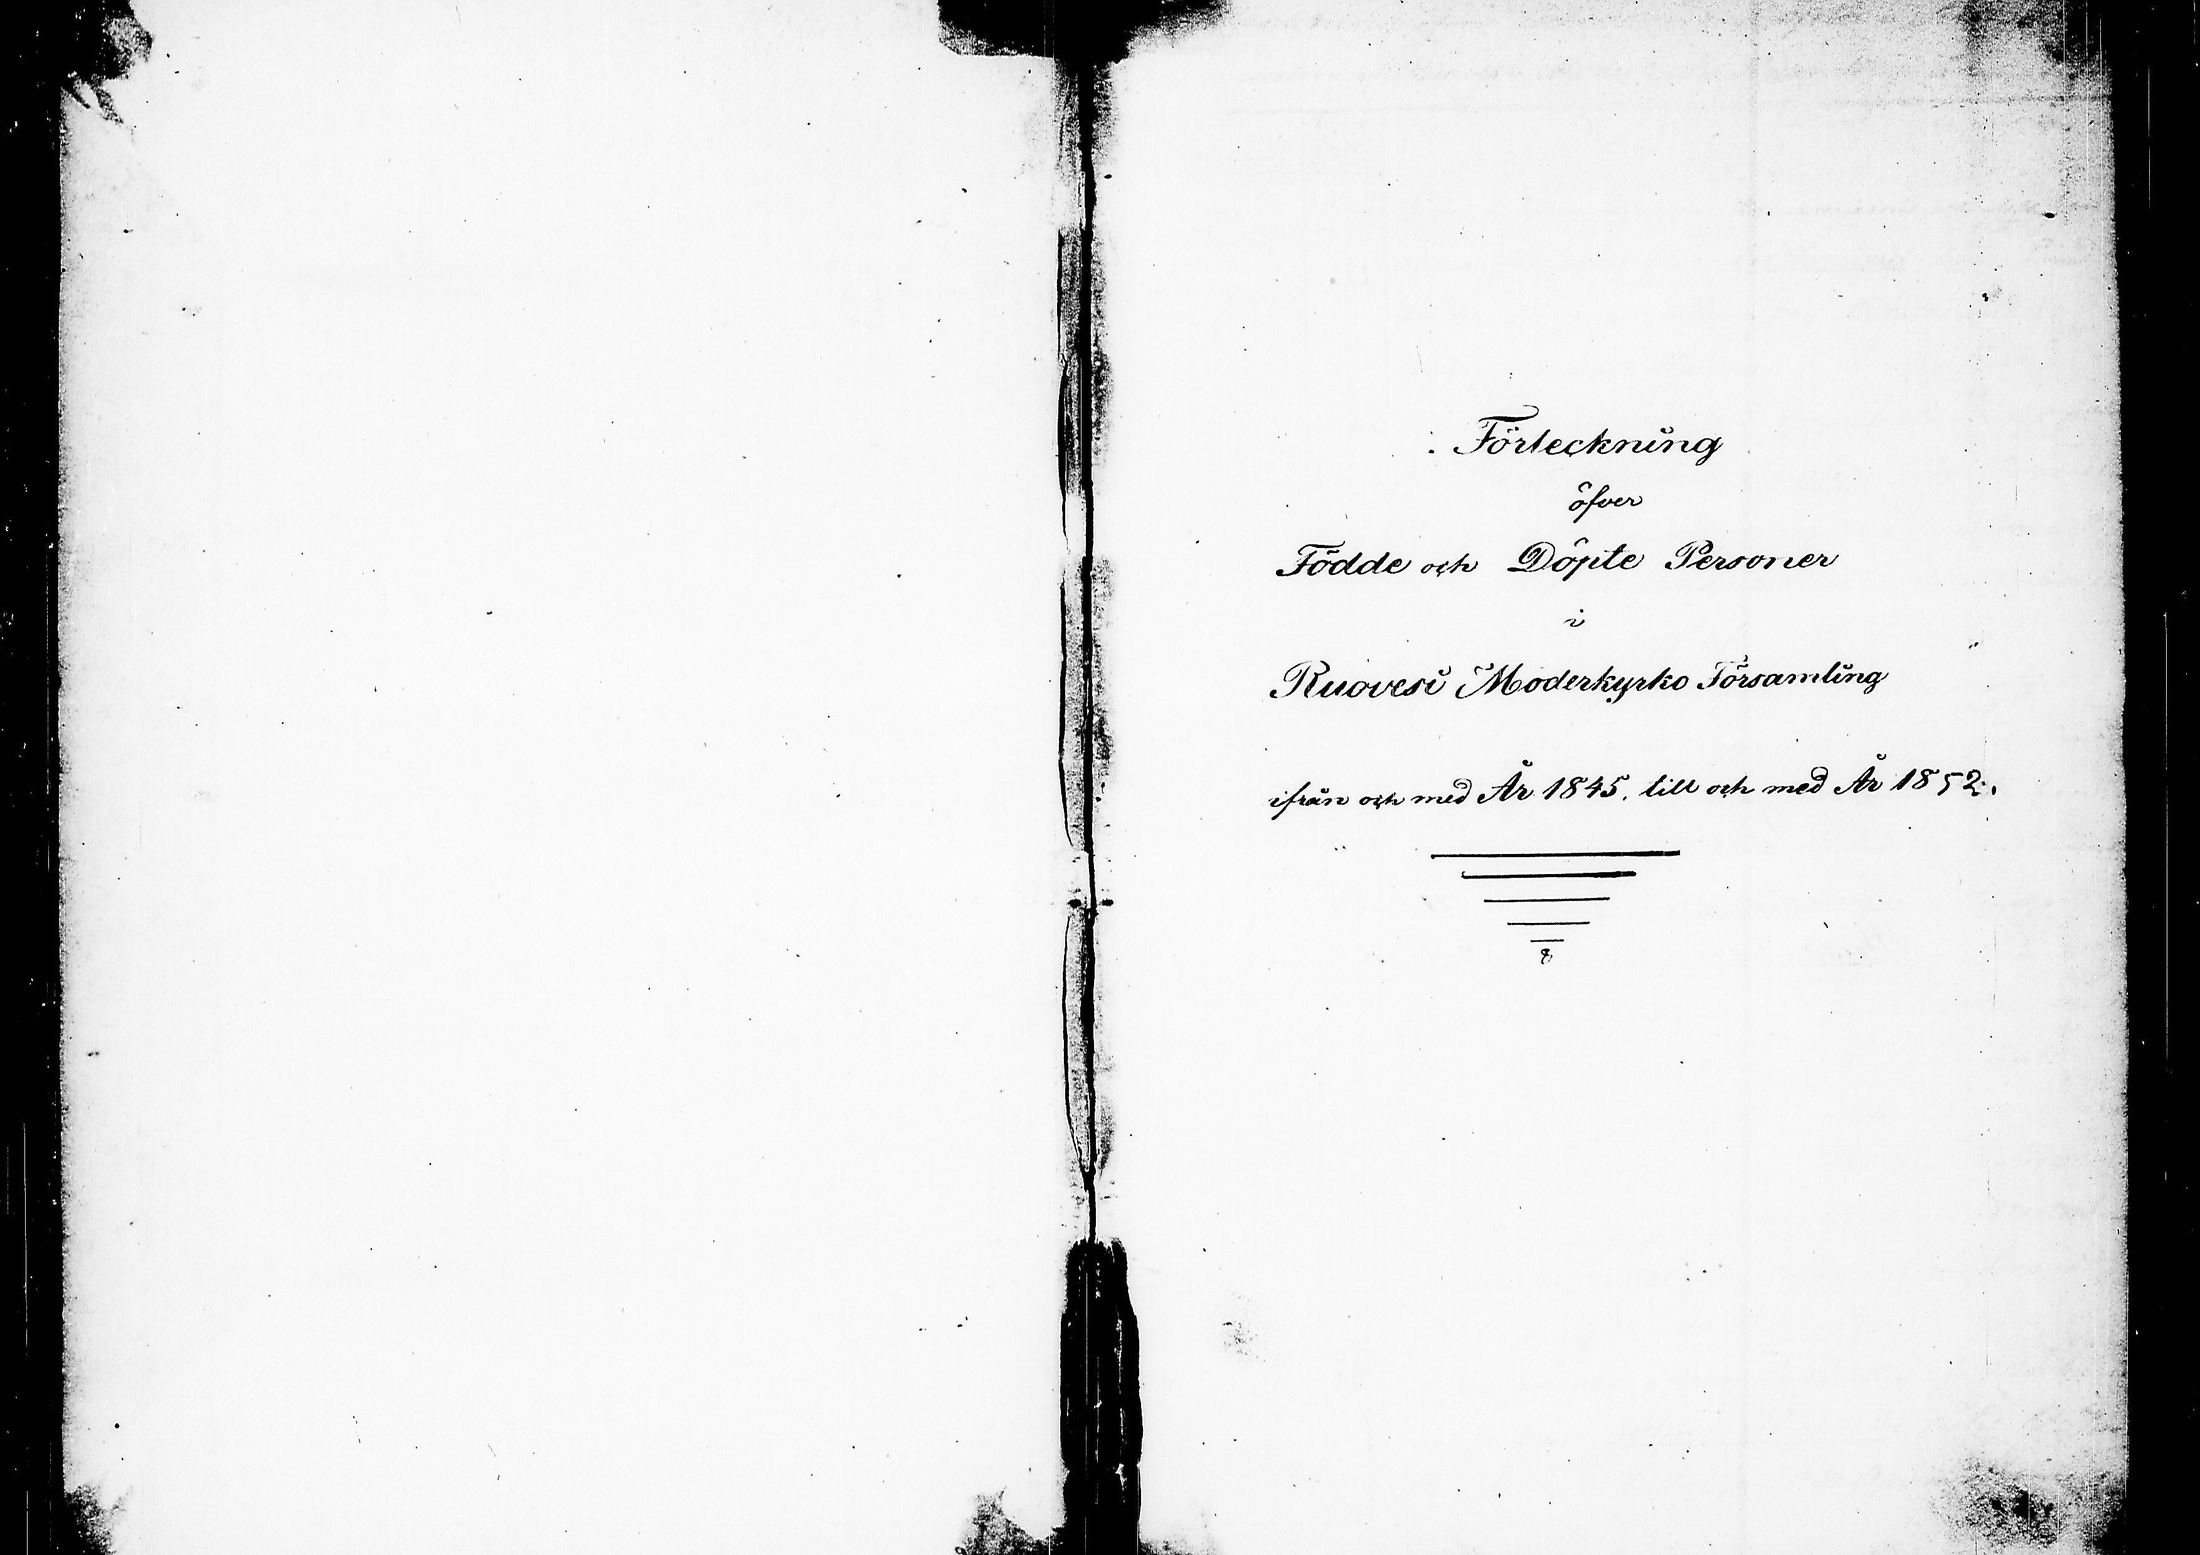 Förteckning
öfver
Födde och Döpte Personer
i
Ruovesi Moderkyrko Församling
ifrån och med År 1845. till och med År 1852.